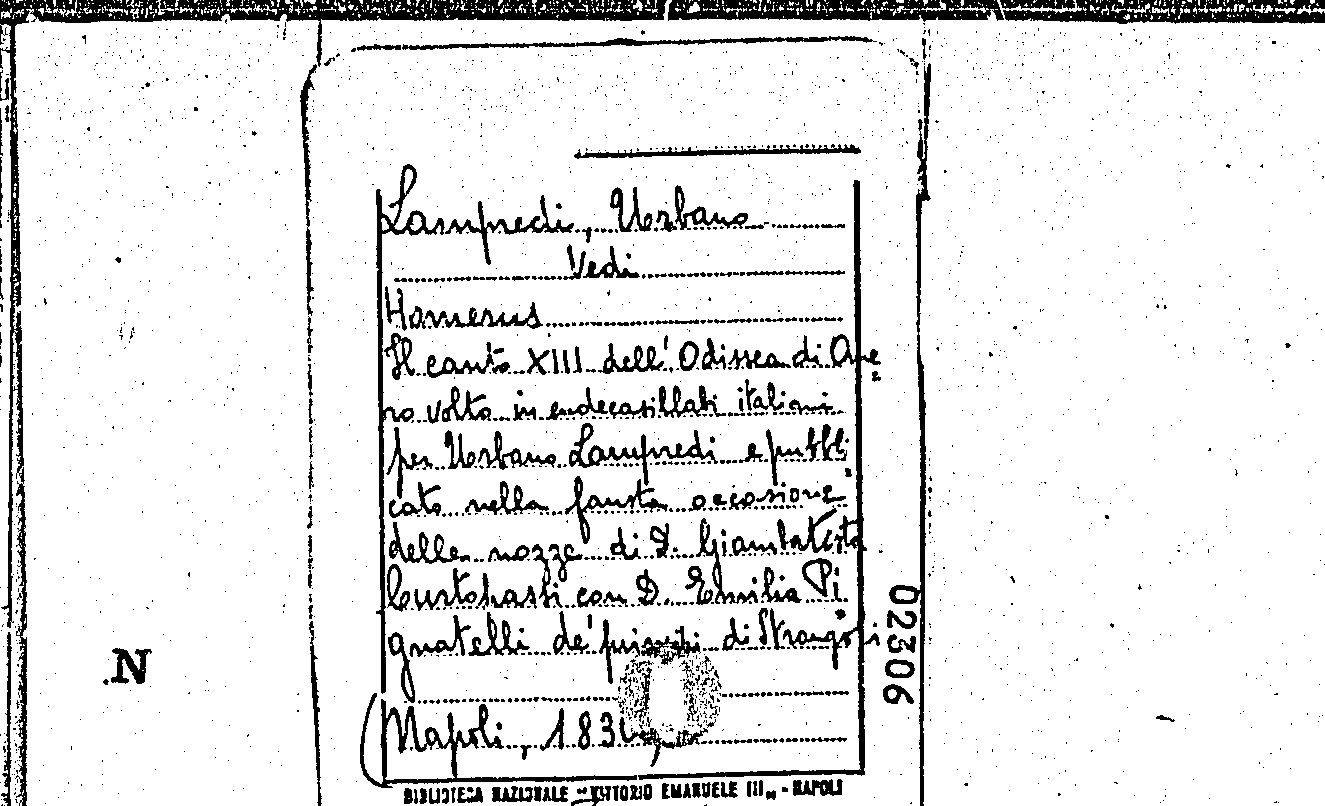 Lampredi, Urbano
Vedi
Homerus
Il canto XIII dell' Odissea di Ome=
ro volto in endecasillabi italiani
per Urbano Lampredi e pubbli=
cato nella fausta occasione
delle nozze di D. Giambatista
con D. Emilia Pi=
gnatelli de' principi di Strongoli
Napoli,
BIBLIOTECA NAZIONALE "VITTORIO EMANUELE III" - NAPOLI
02306
N